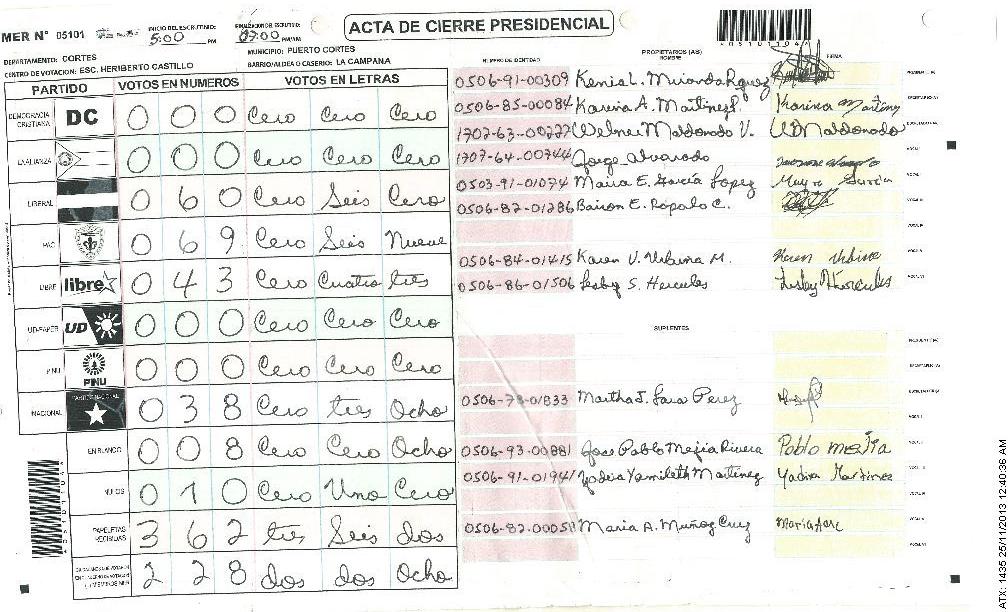 ACTA DE CIERRE PRESIDENCIAL
MER N° 05101
INICIO DEL ESCRUTINIO: 5:00 PM
FINALIZACION DEL ESCRUTINIO: 07:00 PM/AM
A05101104A
DEPARTAMENTO: CORTES
MUNICIPIO: PUERTO CORTES
CENTRO DE VOTACION: ESC. HERIBERTO CASTILLO
BARRIO/ALDEA O CASERIO: LA CAMPANA
PARTIDO VOTOS EN NUMEROS VOTOS EN LETRAS
DEMOCRACIA CRISTIANA DC 0 0 0 Cero Cero Cero
LA ALIANZA 0 0 0 Cero Cero Cero
LIBERAL 0 6 0 Cero Seis Cero
PAC 0 6 9 Cero Seis Nueve
LIBRE libre 0 4 3 Cero Cuatro tres
UD-FAPER UD 0 0 0 Cero Cero Cero
PINU PINU 0 0 0 Cero Cero Cero
NACIONAL PARTIDO NACIONAL 0 3 8 Cero tres Ocho
EN BLANCO 0 0 8 Cero Cero Ocho
NULOS 0 1 0 Cero Uno Cero
PAPELETAS RECIBIDAS 3 6 2 tres Seis dos
2 2 8 dos dos Ocho
NUMERO DE IDENTIDAD PROPIETARIOS (AS) NOMBRE FIRMA
0506-91-00309 Kenia L. Miranda
0506-85-00084 Karina A. Martinez Karina Martinez
1707-63-00277 Welmer Maldonado V. Maldonado
1707-64-00744 Jorge Alvarado
0503-91-01074 Maria E. García Lopez
0506-82-01286 Bairon E. Rapalo C.
0506-84-01415 Karen V. Urbina M. Karen Urbina
0506-86-01506 Lesby S. Hercules Lesby Hercules
SUPLENTES
0506-79-01833 Martha J. Lara Perez
0506-93-00881 Jose Pablo Mejia Rivera Pablo mejia
0506-91-01941 Yadira Yamileth Martinez Yadira Martinez
0506-82-00058 Maria A. Muñoz Cruz
ATX: 1435 25/11/2013 12:40:36 AM